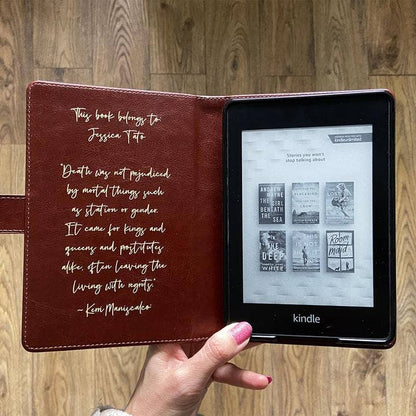 This book belongs to:
Jessica Tato
'Death was not prejudiced
by mortal things such
as station or gender.
It came for kings and
queens and prostitutes
alike, often leaving the
living with regrets.'
~ Kerri Maniscalco
Stories you won't
stop talking about
THE GIRL
BENEATH
THE
SEA
THE
DEEP
WHITE
kindle